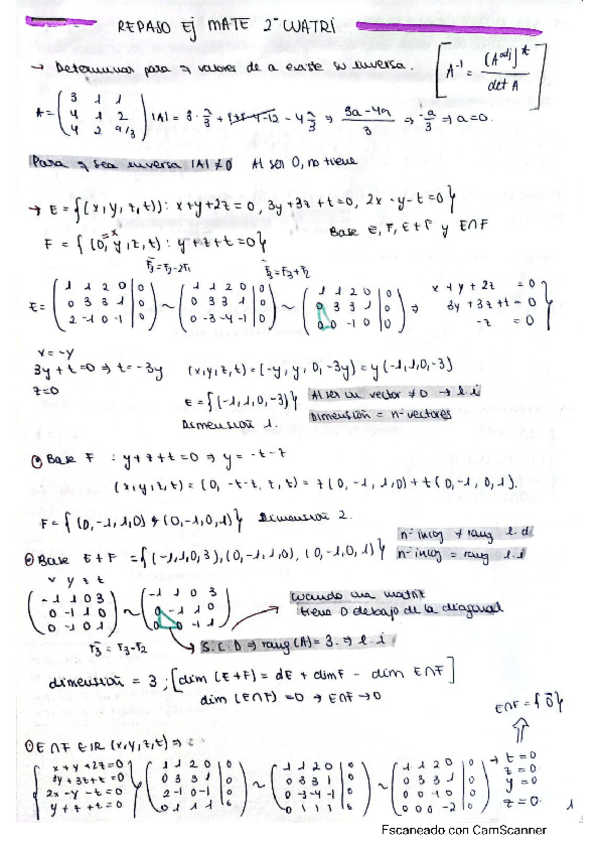 REPASO EJ MATE 2º CUATRI
→ Determinar para q valores de a existe su inversa.
A⁻¹ = (A^adj)^t / det A
A = ( 3 1 1 / 4 1 2 / 4 2 a/3 ) |A| = 3·a/3 + 8+4-4-12 - 4a/3 ⇒ (3a-4a)/3 ⇒ -a/3 ⇒ a=0.
Para q sea inversa |A|≠0 Al ser 0, no tiene
→ E = {(x,y,z,t)): x+y+2z=0, 3y+3z+t=0, 2x-y-t=0}
F = {(0,y,z,t): y+z+t=0} Base E, F, E+F y E∩F
F3 = F3-2F1 F3=F3+F2
E = ( 1 1 2 0 | 0 / 0 3 3 1 | 0 / 2 -1 0 -1 | 0 ) ~ ( 1 1 2 0 | 0 / 0 3 3 1 | 0 / 0 -3 -4 -1 | 0 ) ~ ( 1 1 2 0 | 0 / 0 3 3 1 | 0 / 0 0 -1 0 | 0 ) ⇒ x+y+2z =0 / 3y+3z+t=0 / -z =0 }
x=-y
3y+t=0 ⇒ t=-3y (x,y,z,t)=(-y,y,0,-3y)=y(-1,1,0,-3)
z=0
E={(-1,1,0,-3)} Al ser un vector ≠0 → l.i
Dimensión 1. Dimensión = nº vectores
Base F : y+z+t=0 ⇒ y=-t-z
(x,y,z,t)=(0,-t-z,z,t)=z(0,-1,1,0)+t(0,-1,0,1).
F={(0,-1,1,0) y (0,-1,0,1)} Dimensión 2.
nº incog ≠ rang l.d
Base E+F = {(-1,1,0,3),(0,-1,1,0),(0,-1,0,1)} nº incog = rang l.i
x y z t
( -1 1 0 3 / 0 -1 1 0 / 0 -1 0 1 ) ~ ( -1 1 0 3 / 0 -1 1 0 / 0 0 -1 1 )
cuando una matriz
tiene 0 debajo de la diagonal
r3 = r3-r2 S.C.D ⇒ rang(A)=3 ⇒ l.i
dimensión = 3 ; [dim (E+F) = dE + dimF - dim E∩F]
dim (E∩F) =0 → E∩F→0
E∩F={0}
E∩F E IR (x,y,z,t) ⇒
{ x+y+2z=0 / 3y+3z+t=0 / 2x-y-t=0 / y+z+t=0 } ( 1 1 2 0 | 0 / 0 3 3 1 | 0 / 2 -1 0 -1 | 0 / 0 1 1 1 | 0 ) ~ ( 1 1 2 0 | 0 / 0 3 3 1 | 0 / 0 -3 -4 -1 | 0 / 0 1 1 1 | 0 ) ~ ( 1 1 2 0 | 0 / 0 3 3 1 | 0 / 0 0 -1 0 | 0 / 0 0 0 -2 | 0 ) → t=0 / z=0 / y=0 / z=0
1
Escaneado con CamScanner